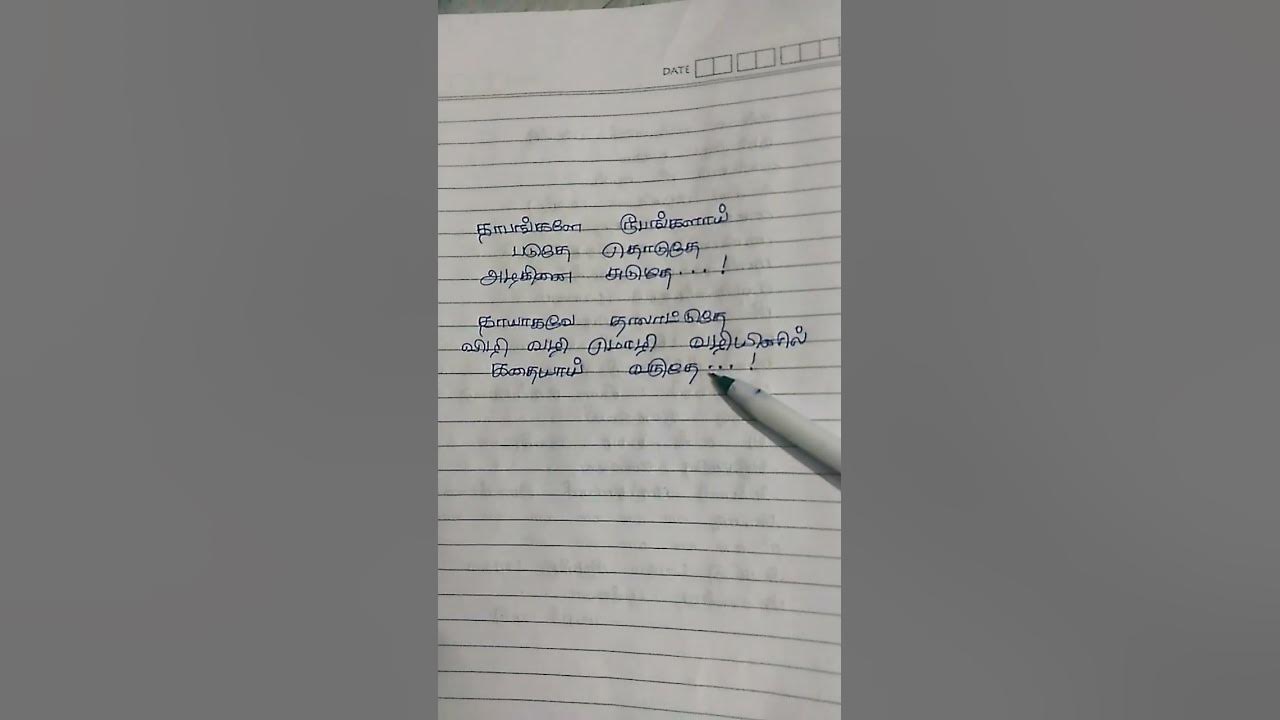 DATE
தாபங்களே ரூபங்களாய்
படுதே தொடுதே
அழகினை சுடுதே...!
தாயாகவே தாலாட்டுதே
விழி வழி மொழி வழியினில்
கதையாய் வருதே...!